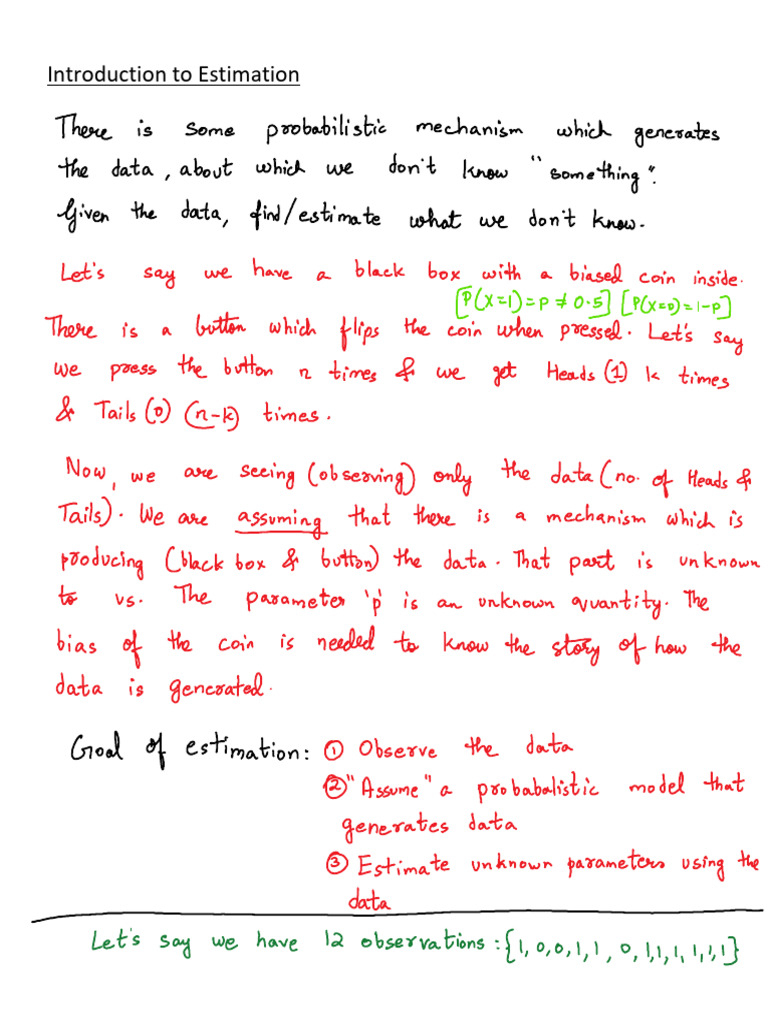 Introduction to Estimation
There is some probabilistic mechanism which generates
the data, about which we don't know "something".
Given the data, find/estimate what we don't know.
Let's say we have a black box with a biased coin inside.
[P(X=1)=P ≠ 0.5] [P(X=0)=1-P]
There is a button which flips the coin when pressed. Let's say
we press the button n times & we get Heads (1) k times
& Tails (0) (n-k) times.
Now, we are seeing (observing) only the data (no. of Heads &
Tails). We are assuming that there is a mechanism which is
producing (black box & button) the data. That part is unknown
to us. The parameter 'p' is an unknown quantity. The
bias of the coin is needed to know the story of how the
data is generated.
Goal of estimation: ① Observe the data
② "Assume" a probabalistic model that
generates data
③ Estimate unknown parameters using the
data
Let's say we have 12 observations: {1, 0, 0, 1, 1, 0, 1, 1, 1, 1, 1, 1}